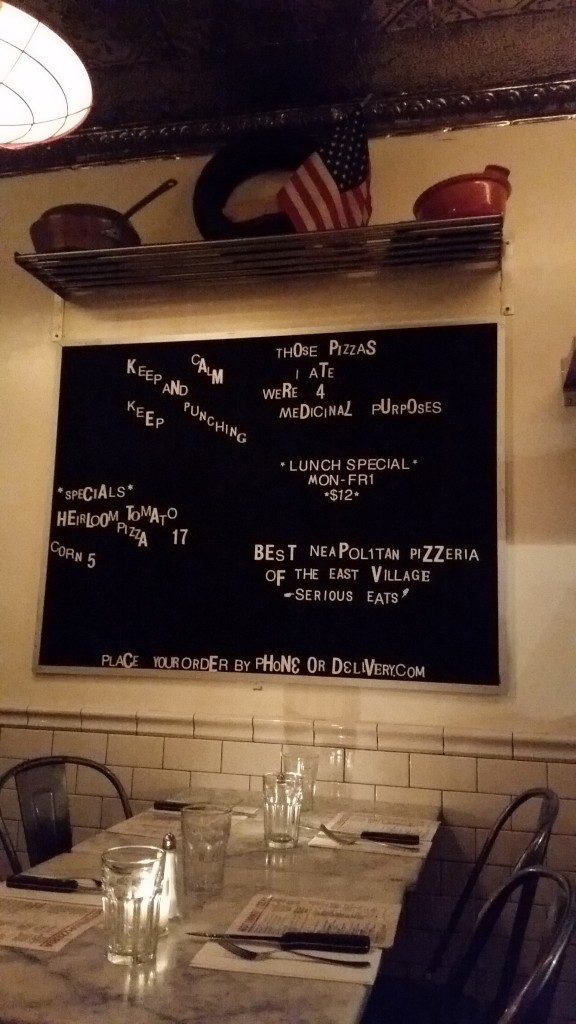 KEEP CALM
AND
KEEP PUNCHING
THOSE PIZZAS
I ATE
WERE 4
MEDICINAL PURPOSES
*LUNCH SPECIAL*
MON-FR1
*$12*
*SPECIALS*
HEIRLOOM TOMATO
PIZZA 17
CORN 5
BEST NEAPOL1TAN PIZZERIA
OF THE EAST VILLAGE
-SERIOUS EATS'
PLACE YOUR ORDER BY PHONE OR DELIVERY.COM